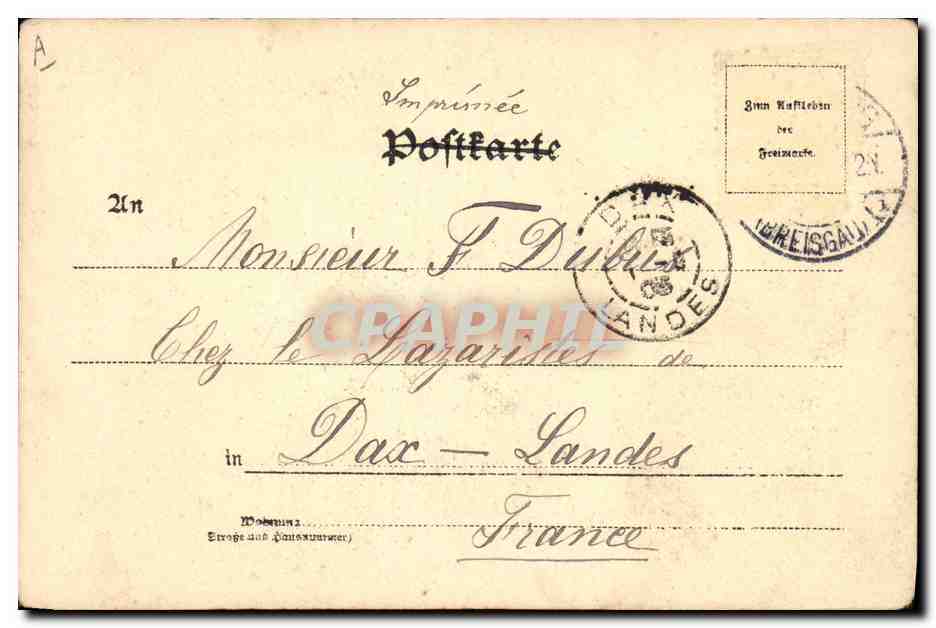 A
Imprimée
Postkarte
Zum Aufkleben
der
Freimarke.
(BREISGAU)
An
DAX
LANDES
Monsieur F Dubus
CPAPHIL
Chez le Lazaristes de
in Dax — Landes
Wohnung
(Straße und Hausnummer)
France